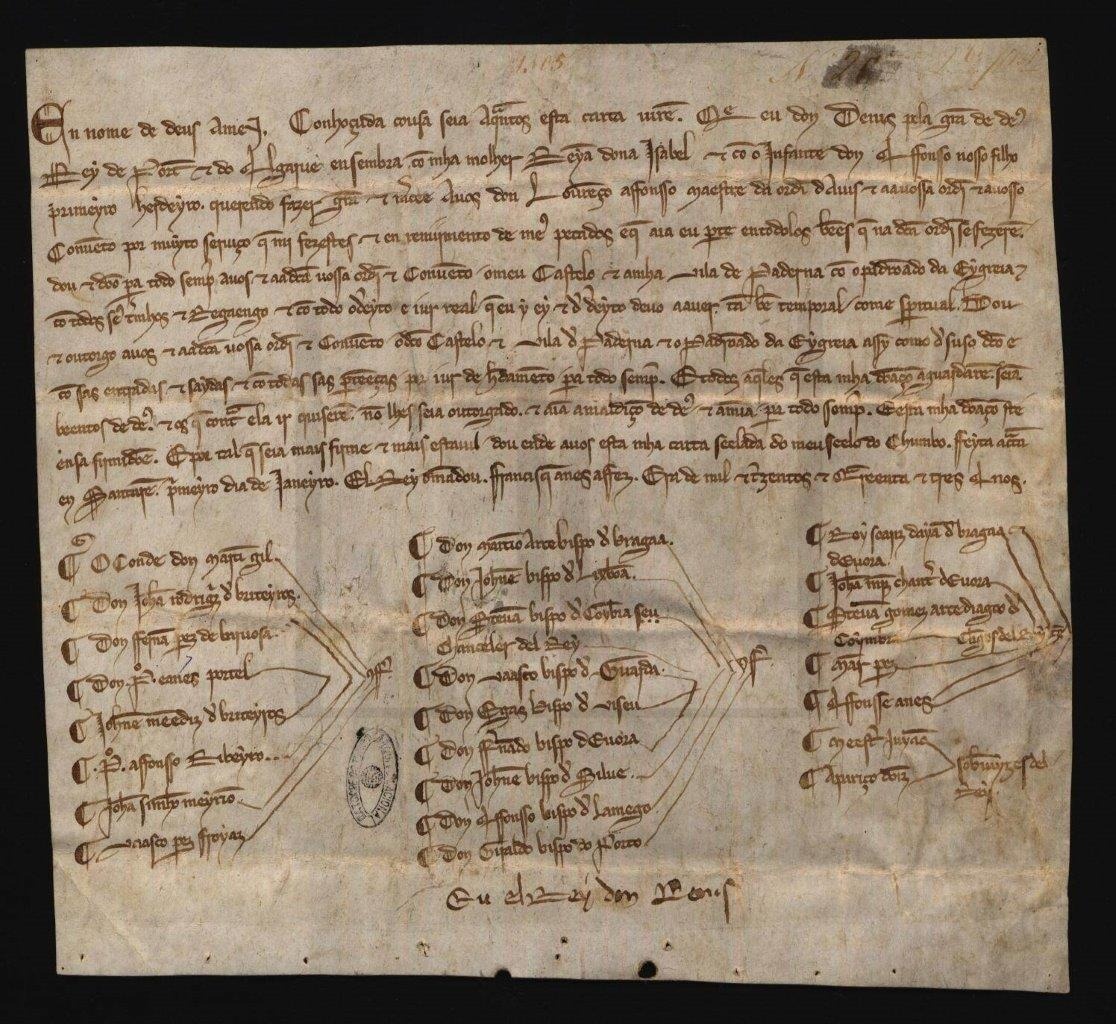 1305
En nome de deus Amen. Conhoçuda cousa seia Aq̃ntos esta carta virẽ. Q̃ eu don Denis pela grã de de᷒
Rey de Port̃ & do Algarue ensembra cõ mha molher Reỹa dona Isabel & cõ o Infante don Affonso nosso filho
primeyro herdeyro. querendo fazer grã & m̃cee Auos don Lourẽço affonsso maestre da ordĩ dAuis & aauossa ordĩ & auosso
Conuẽto por muyto seruiço q̃ mi fezestes & en remijmento de me᷒ pecados & q̃ aia eu parte en todolos bẽes q̃ na dc̃a ordĩ se fezerẽ.
dou & dõo pa todo semp̃ auos & aadc̃a uossa ordĩ & Conuẽto o meu Castelo & a mha vila de Paderna cõ o padroado da Eygreia &
cõ todos se᷒ t̃mhos & Regaengo & cõ todo o dẽyto e iur real q̃ eu y ey & d̃ dẽyto deuo aauer. tã bẽ temporal come spiritual. Dou
& outorgo auos & aadc̃a uossa ordĩ & Conuẽto o dc̃o Castelo & vila d̃ Paderna & o Padroado da Eygreia assy como d̃ suso dc̃o e
cõ sas entradas & saydas & cõ todas sas p̃tẽeças por iur de h̃damẽto pa todo semp̃. E todos aq̃les q̃ esta mha doaçõ aguardarẽ. seiã
beentos de de᷒. & os q̃ contra ela ir quiserẽ. nõ lhes seia outorgado. & aiã a maldiçõ de de᷒ & a mia pa todo semp̃. E esta mha doaçõ stẽ
en sa firmidõe. E por tal q̃ seia mais firme & mais estauil dou ende auos esta mha carta seelada do meu seelo do Chumbo. ffeyta
en Santarẽ. p̃meyro dia de Janeyro. El Rey o mãdou. ffrancisq̃ anes a ffez. Era de mil & t̃zentos & Q̃reenta & tres Anos.
¶ O Conde don Martĩ gil.
¶ Don Johã rodriguiz d̃ briteyros.
¶ Don ffernã pez de baruosa.
¶ Don P̃. eanes portel
¶ Johñe meendiz d̃ briteyros
¶ P̃. affonso Ribeyro.
¶ Johã simhõ meyrĩo.
¶ Vaasco pez ffroyaz
9ff.
¶ Don Martĩo Arcebispo d̃ bragaa.
¶ Don Johñe bispo d̃ Lixbõa.
¶ Don Steuã bispo d̃ Coỹbria seu
Chanceler del Rey
¶ Don Vaasco bispo d̃ Guarda.
¶ Don Egas bispo d̃ Viseu
¶ Don ff̃nãdo bispo dEuora
¶ Don Johñe bispo d̃ Silue.
¶ Don Affonsso bispo d̃ Lamego
¶ Don Giraldo bispo do Porto
9f.
¶ Roy soariz dayã d̃ bragaa &
dEuora.
¶ Johã chantr̃ dEuora
¶ Steuã gomez arcediagoo d̃
Coỹmbra
Cligos del Rey
¶ Mar pez
¶ Affonsse anes
¶ Meestr̃ Juyaã
¶ Apariço doĩz
sobrejuyzes del
Rey.
Eu el Rey don Denis